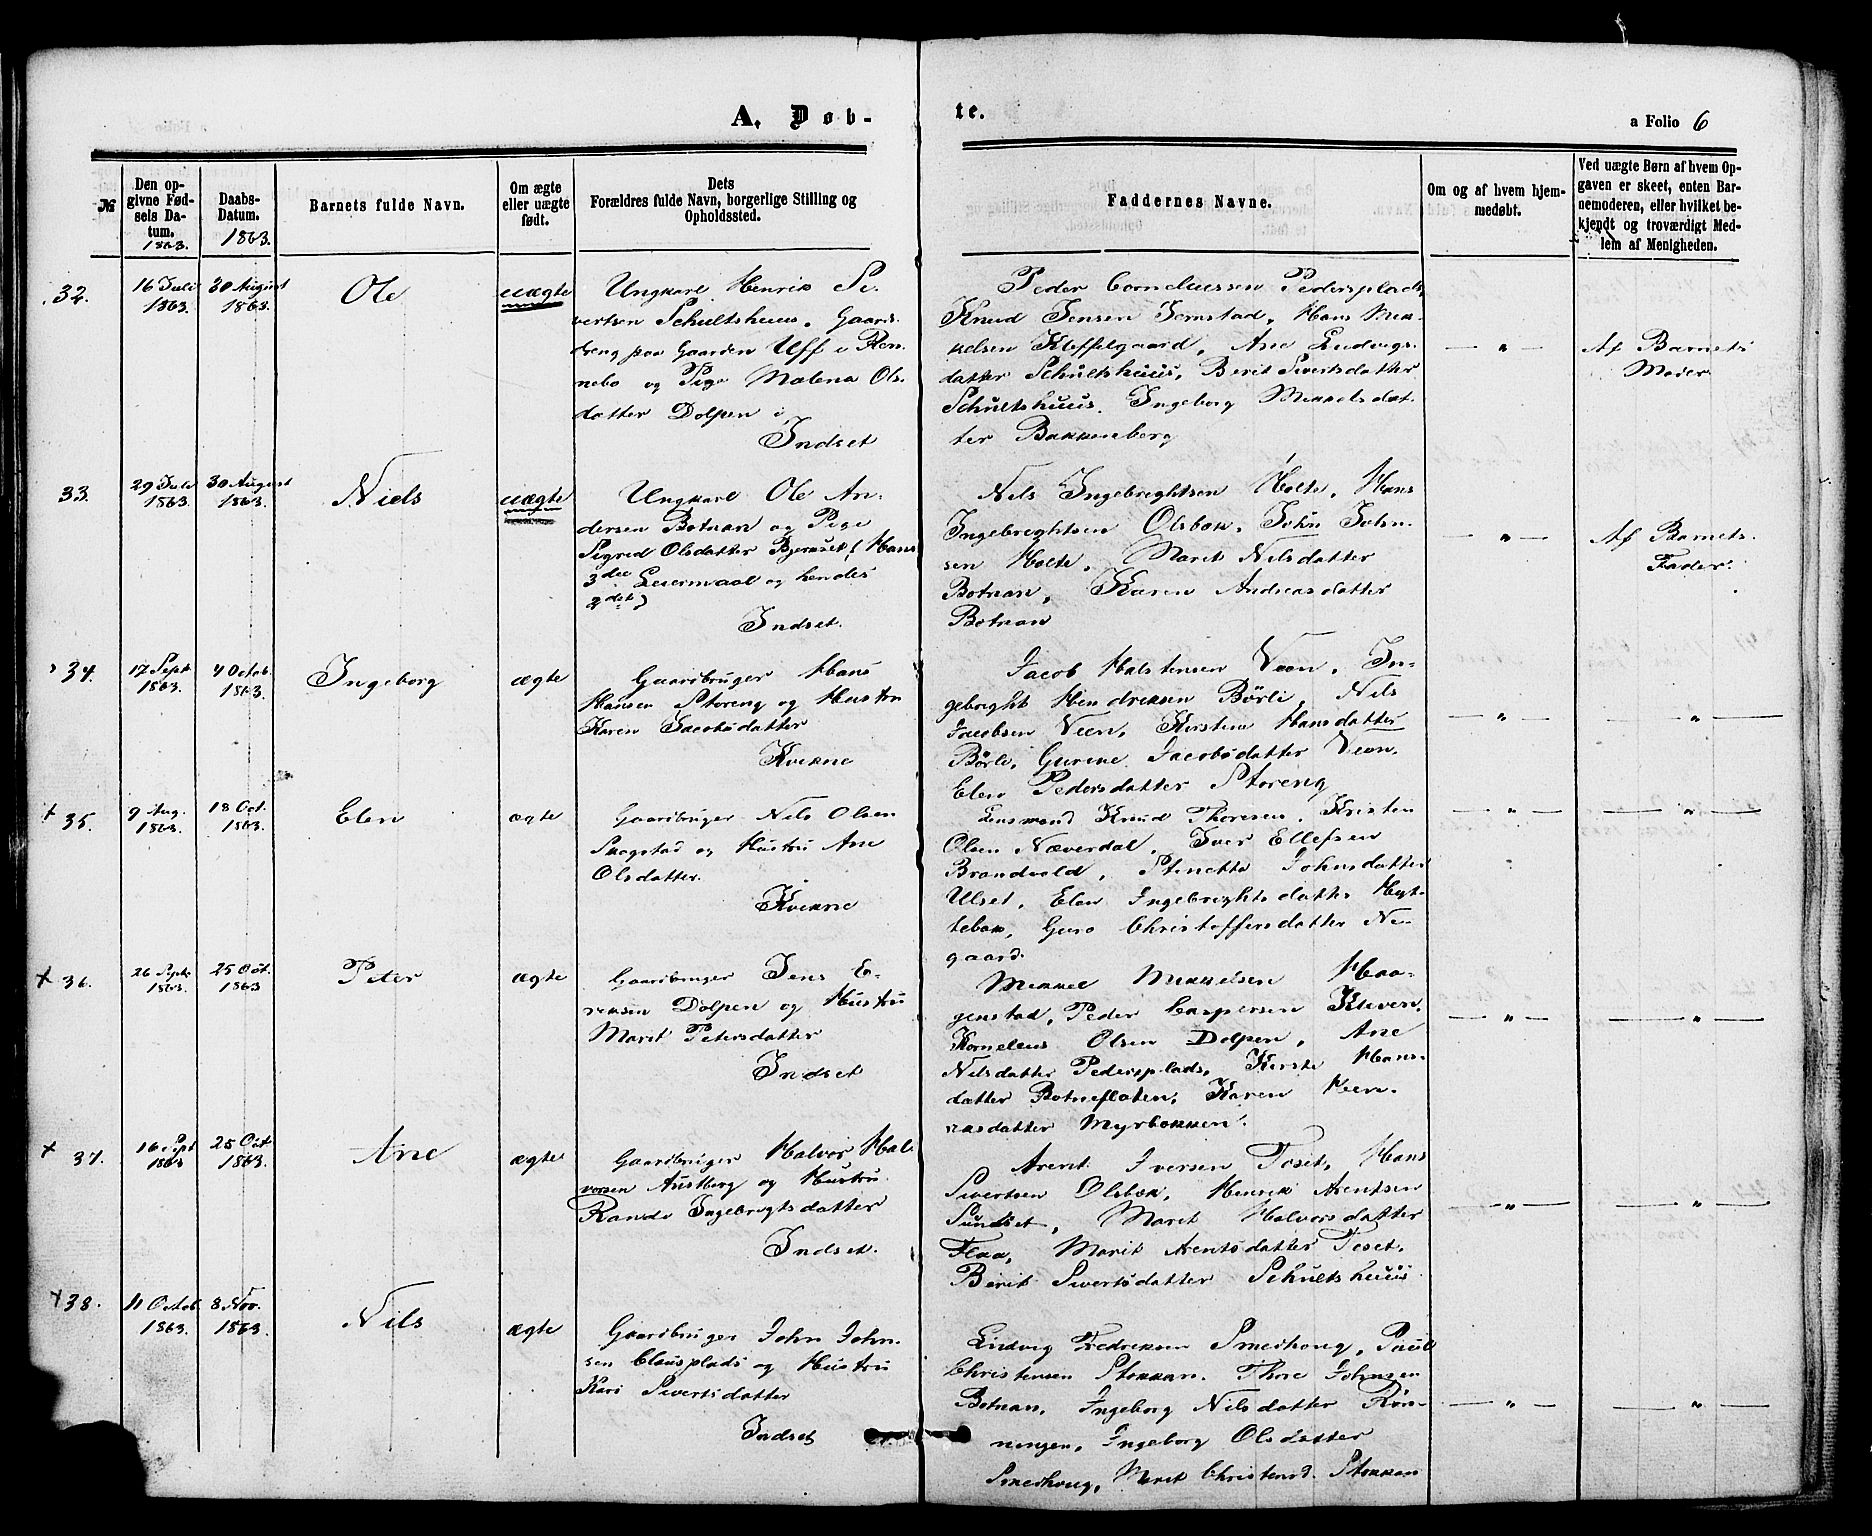 A. Døb-
te.
a Folio 6
№
Den op-
givne Fød-
sels Da-
tum.
1863.
Daabs-
Datum.
1863.
Barnets fulde Navn.
Om ægte
eller uægte
født.
Dets
Forældres fulde Navn, borgerlige Stilling og
Opholdssted.
Faddernes Navne.
Om og af hvem hjem-
medøbt.
Ved uægte Børn af hvem Op-
gaven er skeet, enten Bar-
nemoderen, eller hvilket be-
kjendt og troværdigt Med-
lem af Menigheden.
32.
16 Juli
1863.
30 August
1863.
Ole
uægte
Ungkarl Henrik Si-
vertsen Schultshuus, Gaards-
dreng paa Gaarden Uff i Ren-
nebo og Pige Malena Ols-
datter Dolpen i
Indset
Peder Corneliussen Pedersplads,
Knud Jensen Jernstad, Hans Mik-
kelsen Kleffelgaard, Ane Ludvigs-
datter Schultshuus, Berit Sivertsdatter
Schultshuus. Ingeborg Mikkelsdat-
ter Bakkenberg
— " —
Af Barnets
Moder
33.
29 Juli
1863.
30 August
1863.
Niels
uægte
Ungkarl Ole An-
dersen Botnan og Pige
Sigrid Olsdatter Bjernset (Hans
3die Leiermaal og hendes
2det)
Indset.
Nils Ingebreghtsen Holte, Hans
Ingebreghtsen Olsbæk, John John-
sen Holte, Marit Nilsdatter
Botnan, Karen Andreasdatter
Botnan
— " —
Af Barnets
Fader.
34.
17 Sept
1863.
4 Octob.
1863.
Ingeborg
ægte
Gaardbruger Hans
Hansen Storeng og Hustru
Karen Jacobsdatter
Kvikne
Jacob Halstensen Veen, In-
gebright Hendriksen Børli, Nils
Jacobsen Veen, Kirsten Hansdatter
Børli, Gurine Jacobsdatter Veen,
Elen Pedersdatter Storeng
— " —
— " —
+ 35.
9 Aug.
1863.
18 Oct.
1863.
Elen
ægte
Gaardbruger Nils Olsen
Skogstad og Hustru Ane
Olsdatter.
Kvikne
Lensmand Knud Thoresen, Kristen
Olsen Næverdal, Iver Ellefsen
Brandvold, Stinette Johnsdatter
Ulset, Elen Ingebrightsdatter Hyt-
tebak, Guro Christoffersdatter Ne-
gaard.
— " —
— " —
+ 36.
26 Sept.
1863.
25 Oct.
1863
Peter
ægte
Gaardbruger Jens E-
riksen Dolpen og Hustru
Marit Petersdatter
Indset
Mikkel Mikkelsen Haa-
genstad, Peder Caspersen Kleven,
Kornelius Olsen Dolpen, Ane
Nilsdatter Pedersplads, Kirste Hans-
datter Botnefloten, Karen
datter Myrbakken.
— " —
— " —
+ 37.
16 Sept
1863
25 Oct
1863.
Ane
ægte
Gaardbruger Halvor Hal-
vorsen Austberg og Hustru
Randi Ingebrigtsdatter
Indset.
Arent Iversen Toset, Hans
Sivertsen Olsbæk, Henrik Arentsen
Sundset, Marit Halvorsdatter
Flaa, Marit Arentsdatter Toset,
Berit Sivertsdatter Schultshuus
— " —
— " —
+ 38.
11 Octob.
1863.
8 Nov.
1863.
Nils
ægte
Gaardbruger John John-
sen Clausplads og Hustru
Kari Sivertsdatter
Indset
Ludvig Fredriksen Smedhoug, Paul
Christensen Stokkan. Thore Johnsen
Botnan, Ingeborg Nilsdatter Røn-
ningen, Ingeborg Olsdatter
Smedhoug, Marit Christensd. Stokkan
— " —
— " —